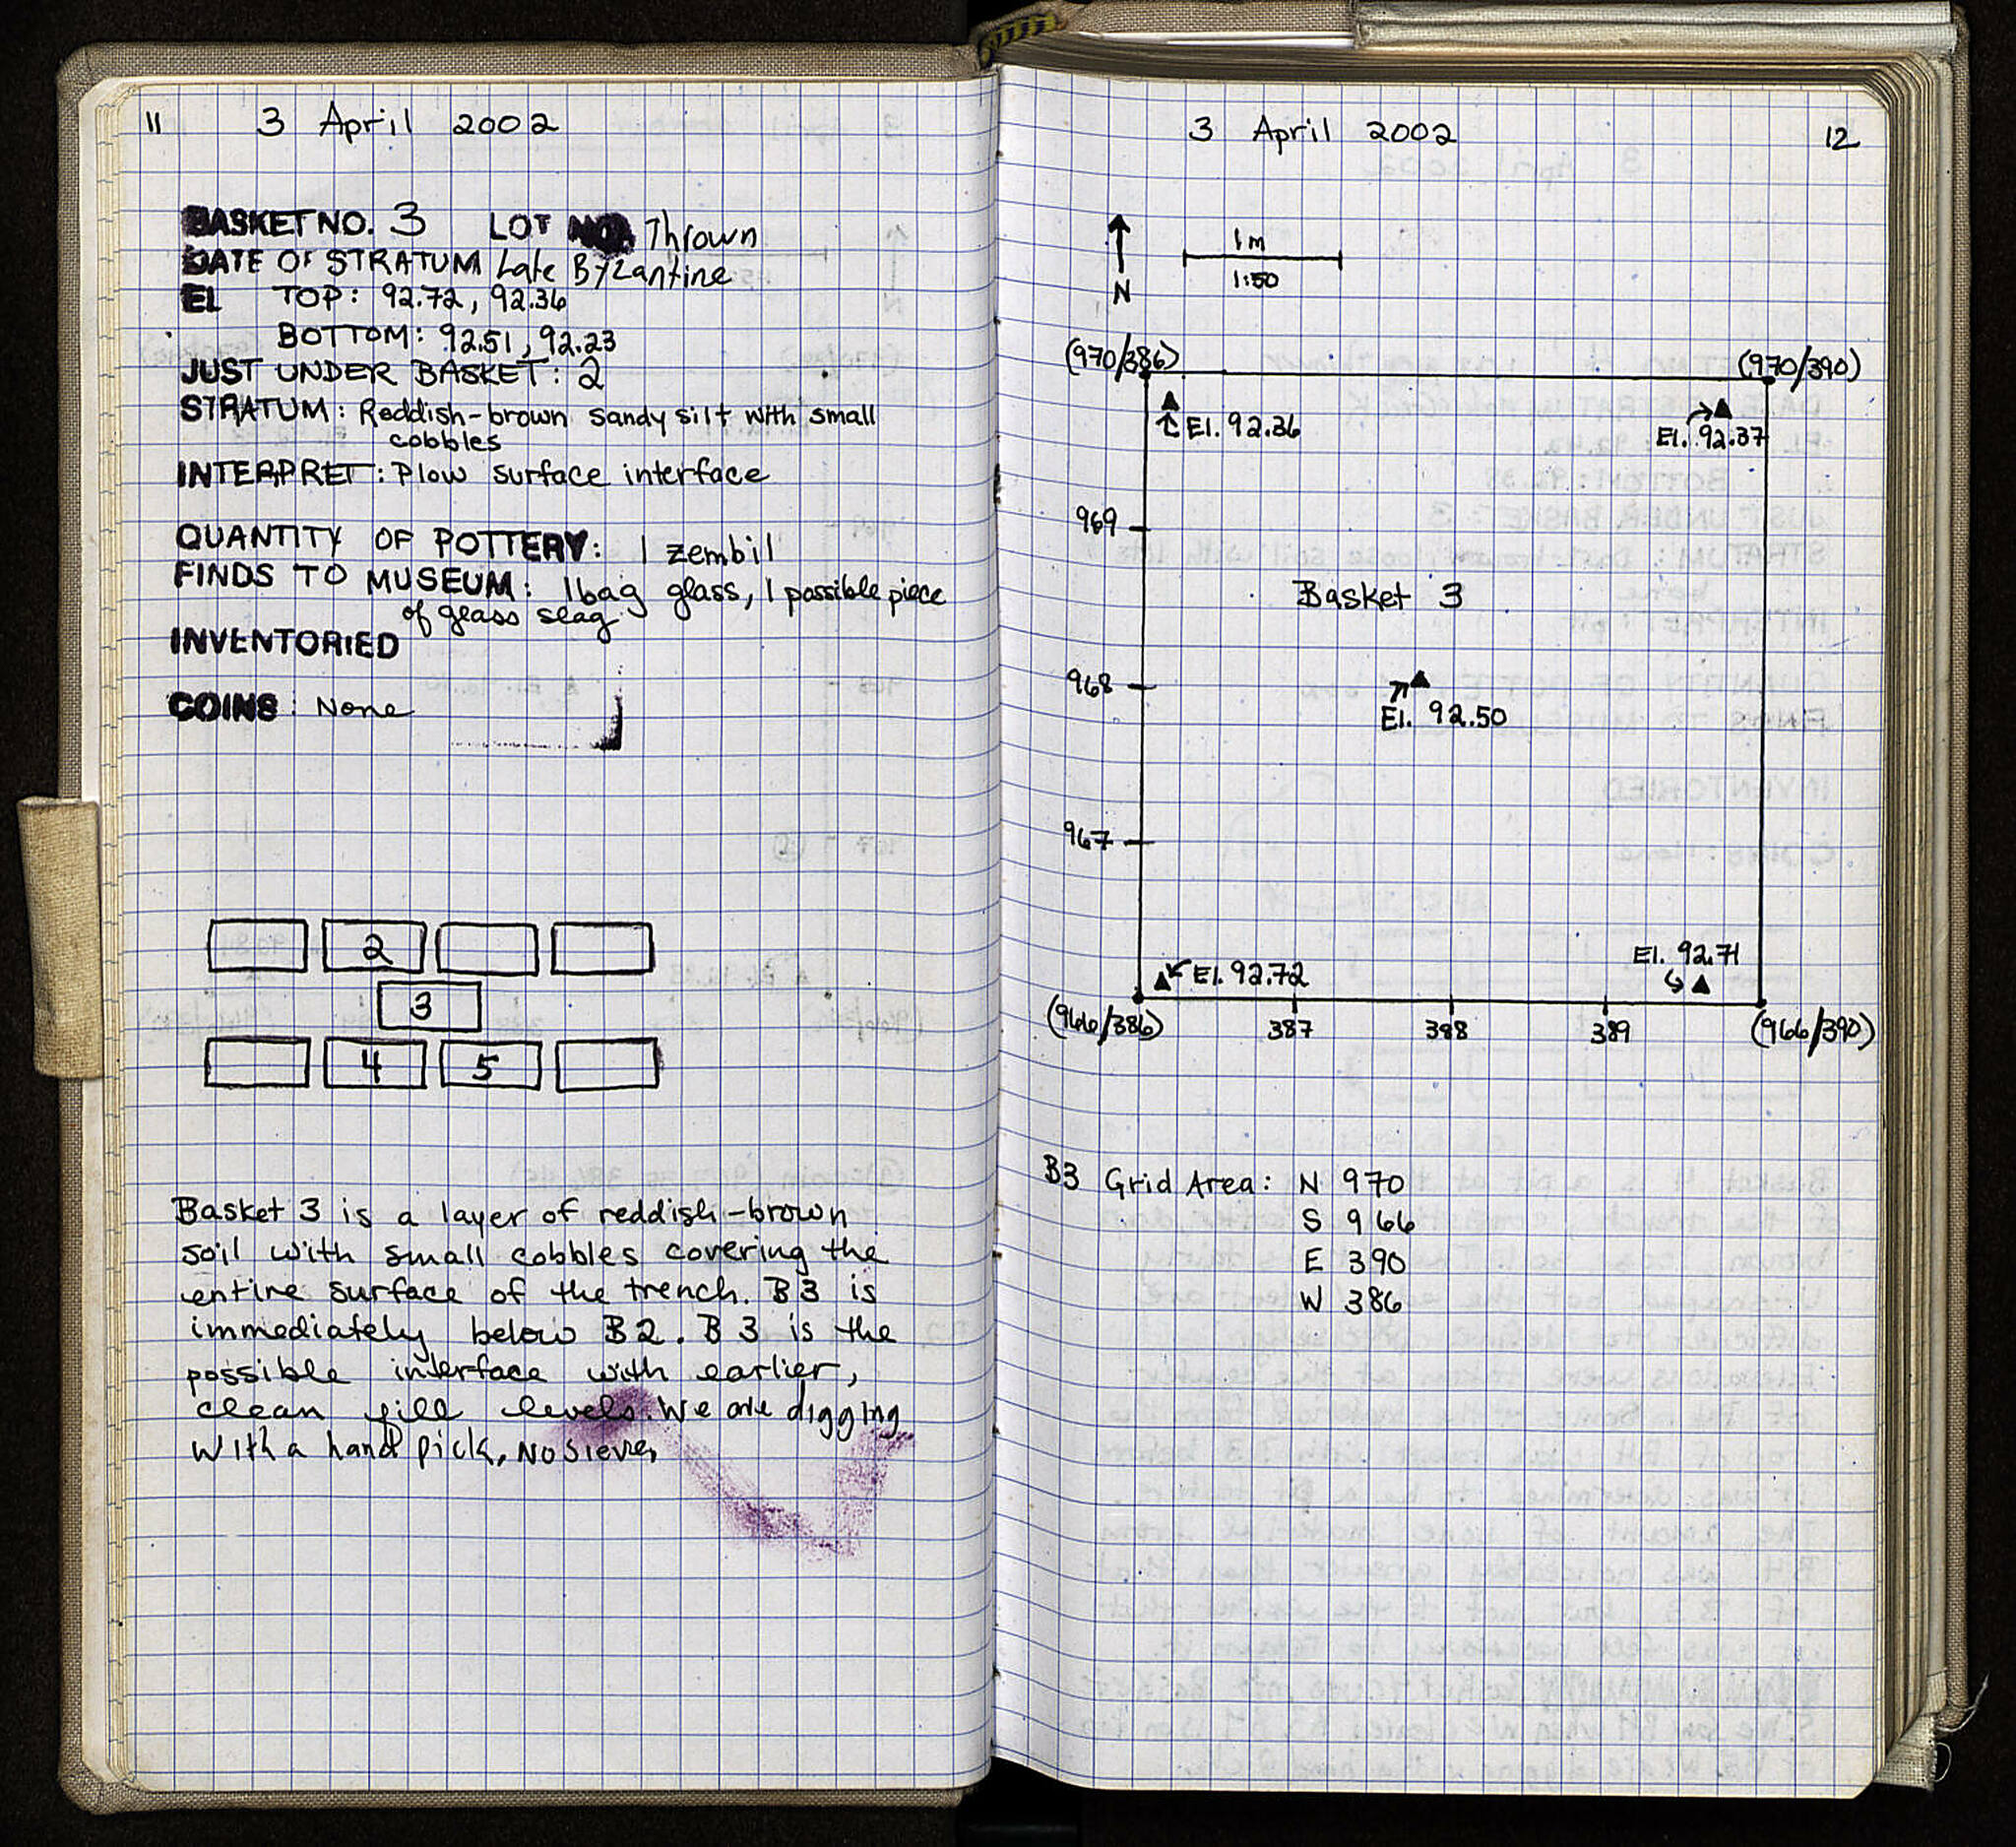 11 3 April 2002
BASKET NO. 3 LOT NO. Thrown
DATE OF STRATUM Late Byzantine
EL TOP: 92.72, 92.36
BOTTOM: 92.51, 92.23
JUST UNDER BASKET: 2
STRATUM: Reddish-brown sandy silt with small
cobbles
INTERPRET: Plow surface interface
QUANTITY OF POTTERY: 1 zembil
FINDS TO MUSEUM: 1 bag glass, 1 possible piece
of glass slag
INVENTORIED
COINS: None
2
3
4 5
Basket 3 is a layer of reddish-brown
soil with small cobbles covering the
entire surface of the trench. B3 is
immediately below B2. B3 is the
possible interface with earlier,
clean fill levels. We are digging
with a hand pick, no sieve,
3 April 2002 12
1m
N 1:50
(970/386) (970/390)
El. 92.36
El. 92.37
969
Basket 3
968
El. 92.50
967
El. 92.71
El. 92.72
(966/386) 387 388 389 (966/390)
B3 Grid Area: N 970
S 966
E 390
W 386